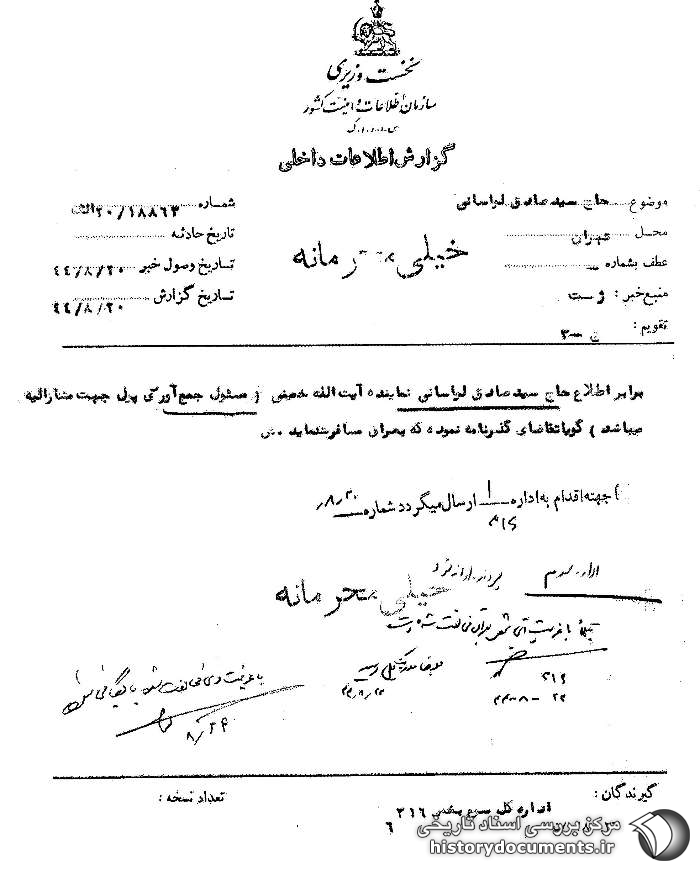 نخست وزیری
سازمان اطلاعات و امنیت کشور
س.ا.و.ا.ک
گزارش اطلاعات داخلی
موضوع حاج سید صادق لواسانی
شماره ۲۰/۱۸۸۶۳الف
محل تهران
تاریخ حادثه
خیلی محرمانه
عطف بشماره —
تاریخ وصول خبر ۴۴/۸/۲۰
منبع خبر : ژست
تاریخ گزارش ۴۴/۸/۲۰
تقویم : ن —۳
برابر اطلاع حاج سید صادق لواسانی نماینده آیت الله خمینی ( و مسئول جمع آوری پول جهت مشارالیه
میباشد ) گویا تقاضای گذرنامه نموده که بعراق مسافرت نماید .
جهته اقدام به اداره ۱ ارسال میگردد شماره
۳۱۶
اداره سوم
خیلی محرمانه
با عزیمت
۳۱۶
۸/۲۴
گیرندگان :
تعداد نسخه :
اداره کل سوم بخش ۳۱۶
۶
مرکز بررسی اسناد تاریخی
historydocuments.ir